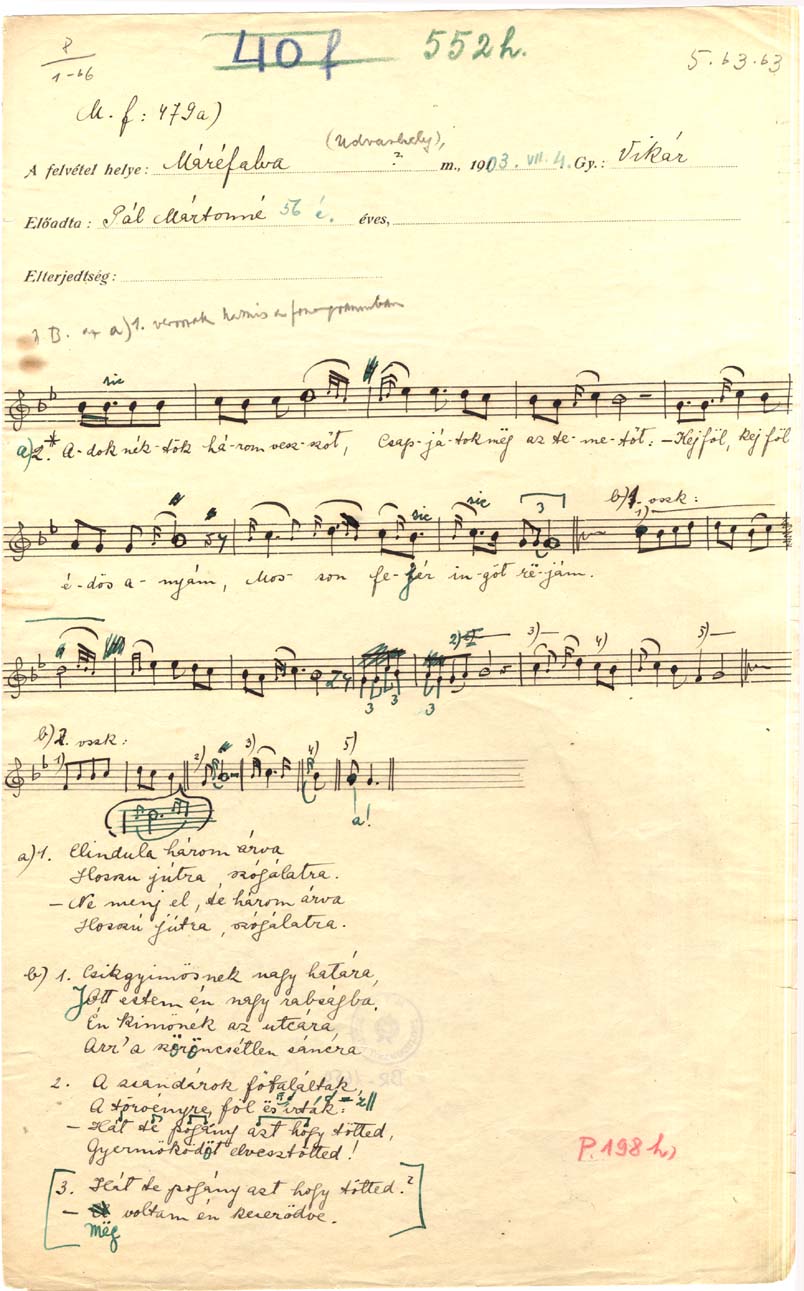 8
1-66
40 f
552 h.
5.63.63
M. f: 479a)
(Udvarhely),
A felvétel helye: Máréfalva ? m., 1903. VII. 4. Gy.: Vikár
Előadta: Pál Mártonné 56 é. éves,
Elterjedtség:
B. az a) 1. versszak hamis a fonogrammban
sic
a) 2.* A-dok nék-tök há-rom vesz-szőt, Csap-já-tok mëg az te-me-tőt: – Kejföl, kejföl
sic sic 3 b) 1. vszk: 1)
é-dös a-nyám, Mos-son fe-jér in-göt rë-jám.
2) 3) 4) 5)
3 3 3
b) 2. vszk:
1) 2) 3) 4) 5)
a!
a) 1. Elindula három árva
Hosszu jútra, szógálatra.
– Ne menj el, te három árva
Hosszú jútra, szógálatra.
b) 1. Csikgyimösnek nagy határa,
Jott estem én nagy rabságba.
Én kimönék az utcára,
Arr'a szöröncsétlen sáncra
2. A zsandárok főtaláltak,
A törvényre föl és irták:
– Hát te pogány azt hogy tötted,
Gyermöködöt elvesztötted!
P. 198 h,
3. Hát te pogány azt hogy tötted?
– voltam én keserödve.
mëg